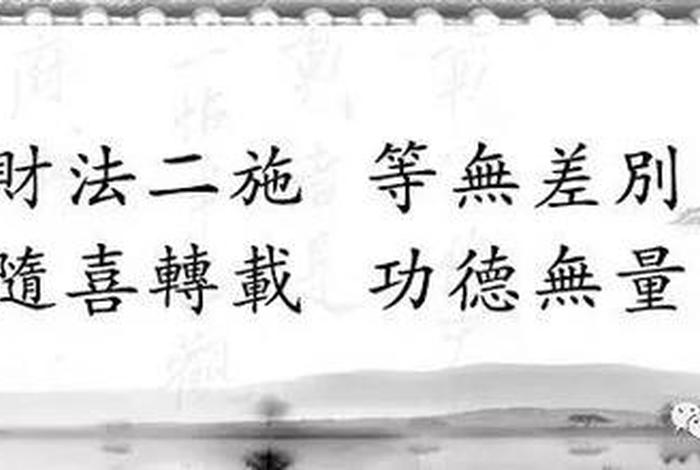 財法二施 等無差別
隨喜轉載 功德無量